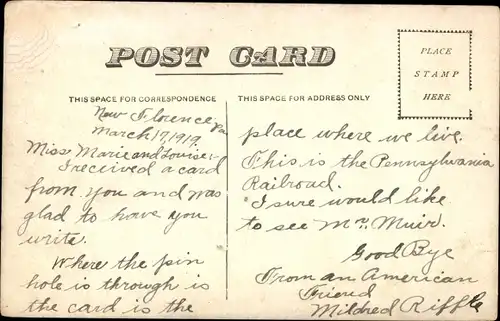 POST CARD
PLACE
STAMP
HERE
THIS SPACE FOR CORRESPONDENCE
New Florence, Pa
March 17, 1919.
Miss Marie and Louise:-
I received a card
from you and was
glad to have you
write.
Where the pin
hole is through is
the card is the
THIS SPACE FOR ADDRESS ONLY
place where we live.
This is the Pennsylvania
Railroad.
I sure would like
to see Mr. Muir.
Good Bye
From an American
Friend
Mildred Riffle